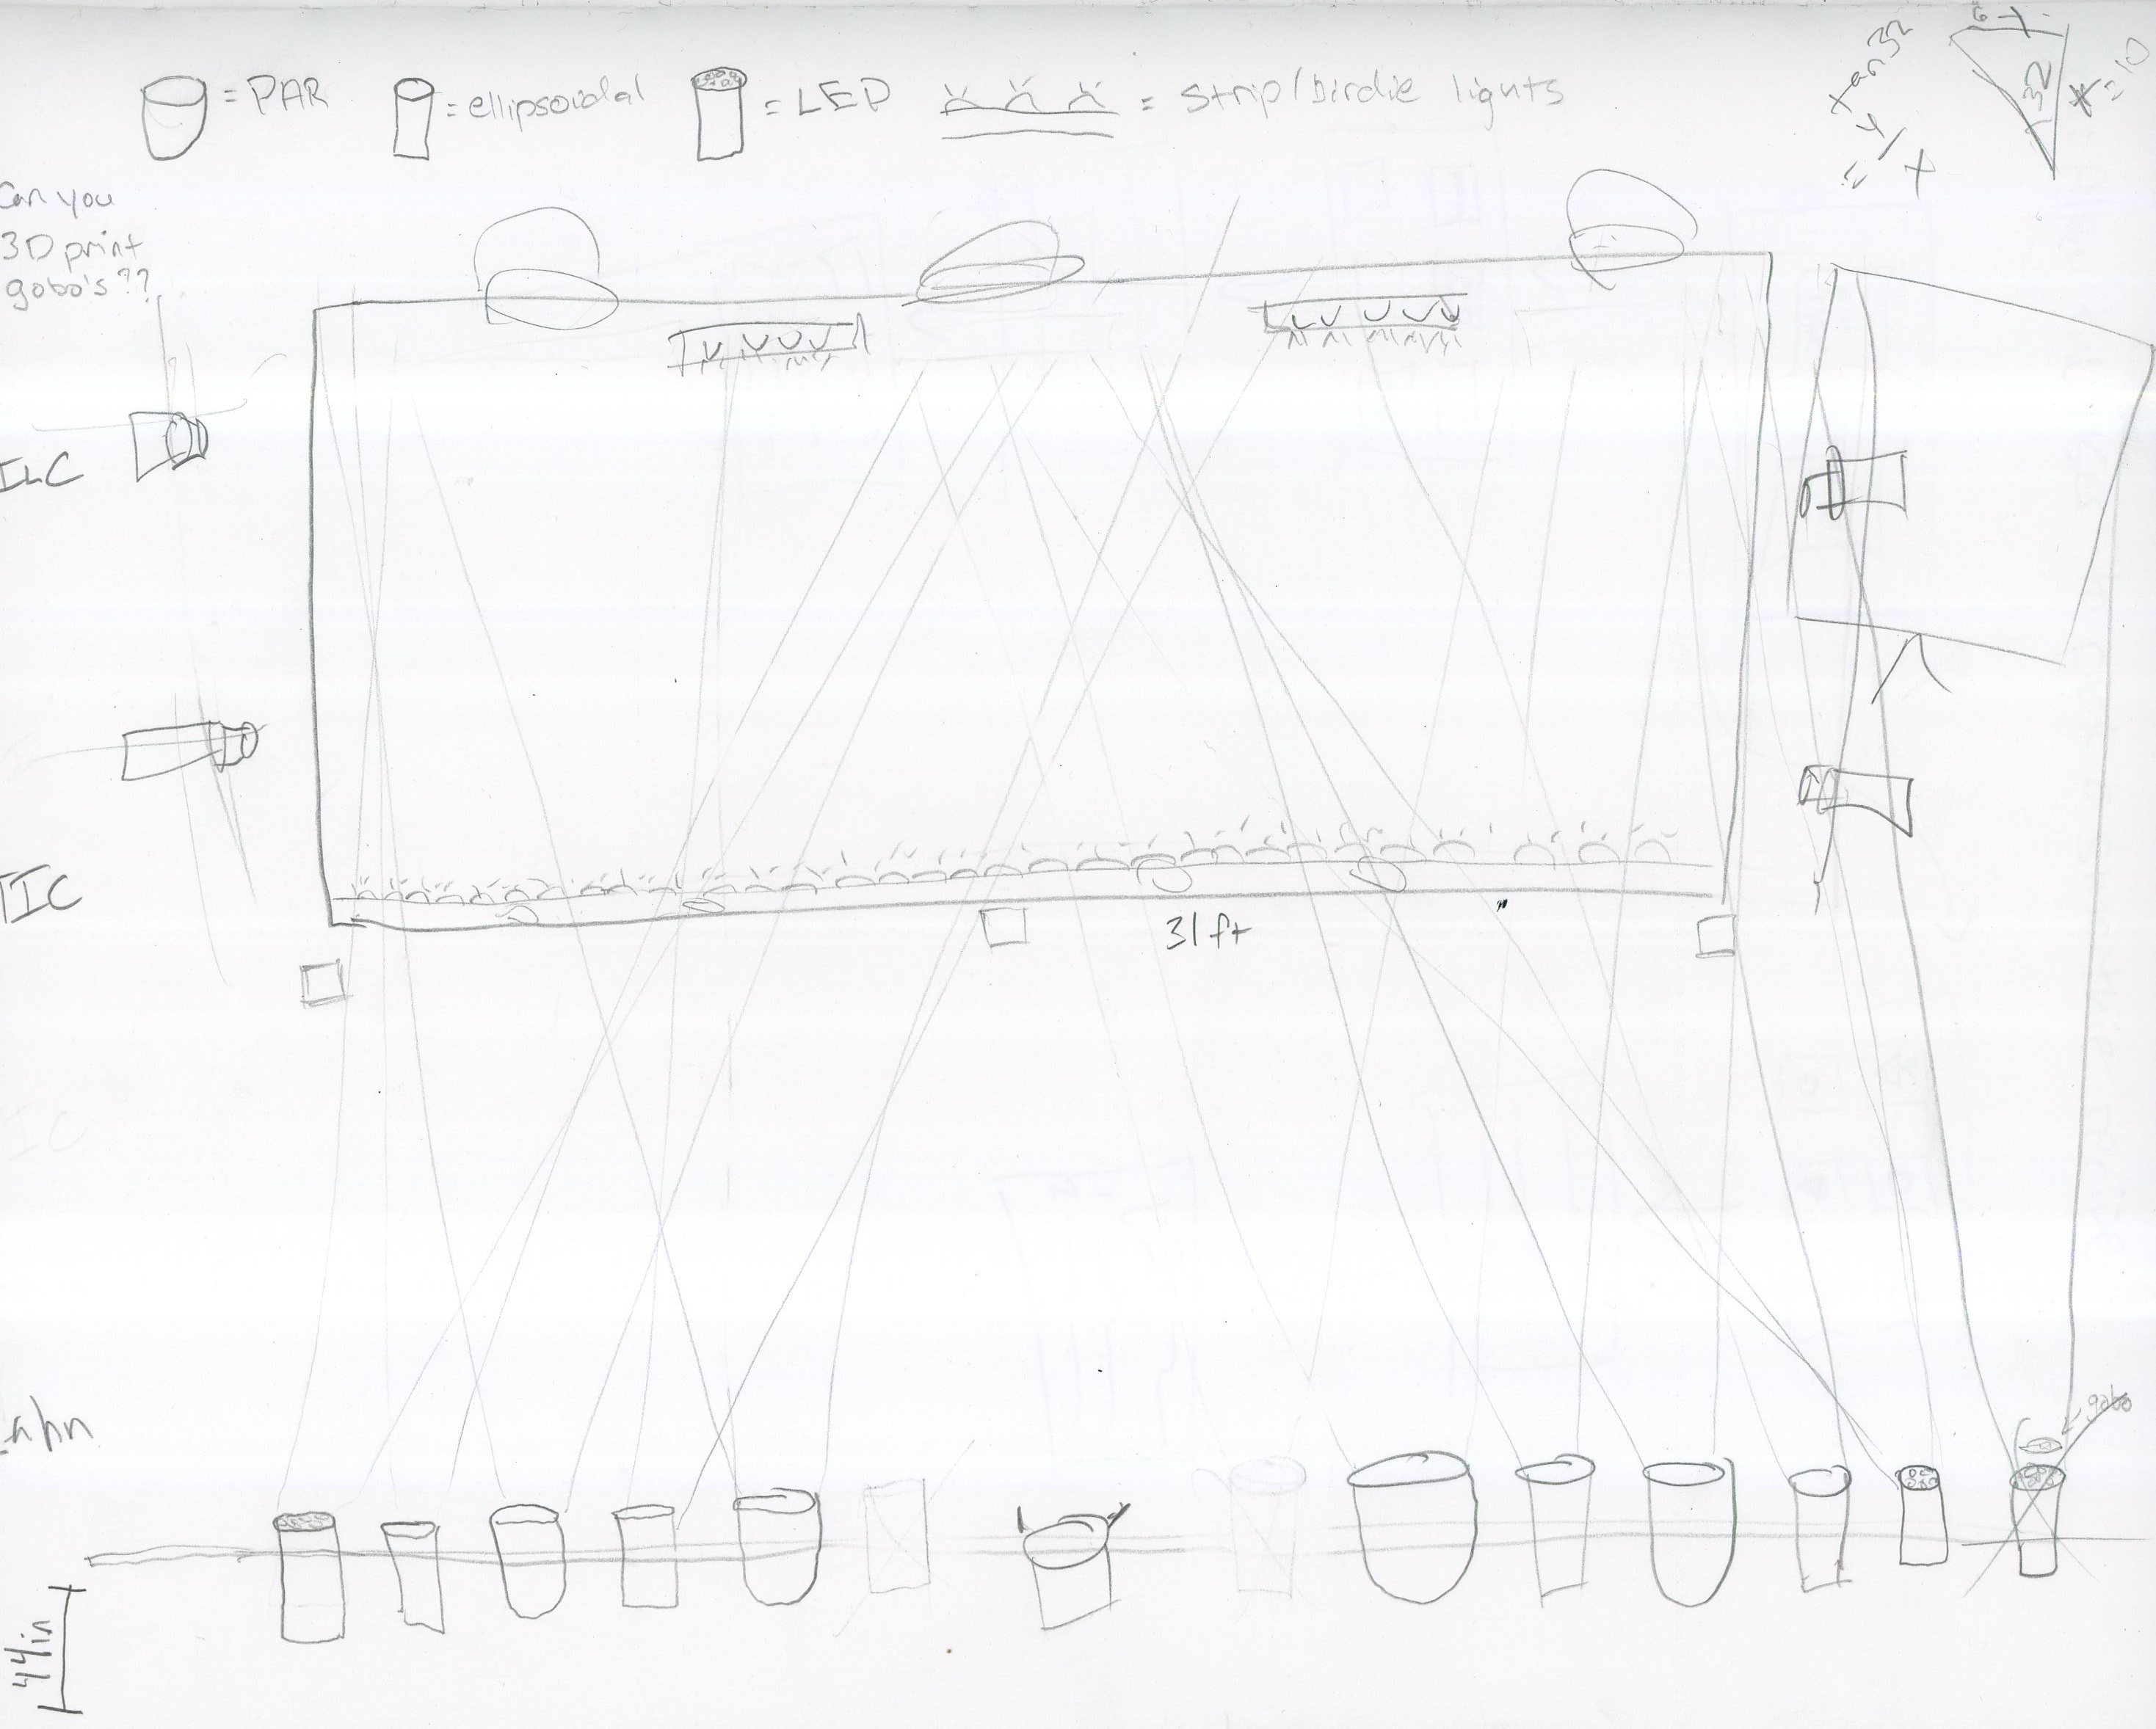 = PAR
= ellipsoidal
= LED
= strip/birdie lights
tan 32
= y/x
32
= 10
Can you
3D print
gobo's??
31 ft
gobo
44in